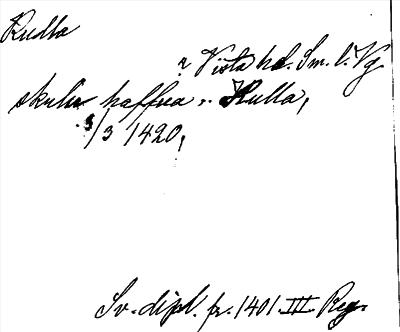 Rulla
? Vista hd. Sm. l. Vg
skulu haffua .. Hulla,
3/3 1420,
Sv. dipl. fr. 1401 III Reg.